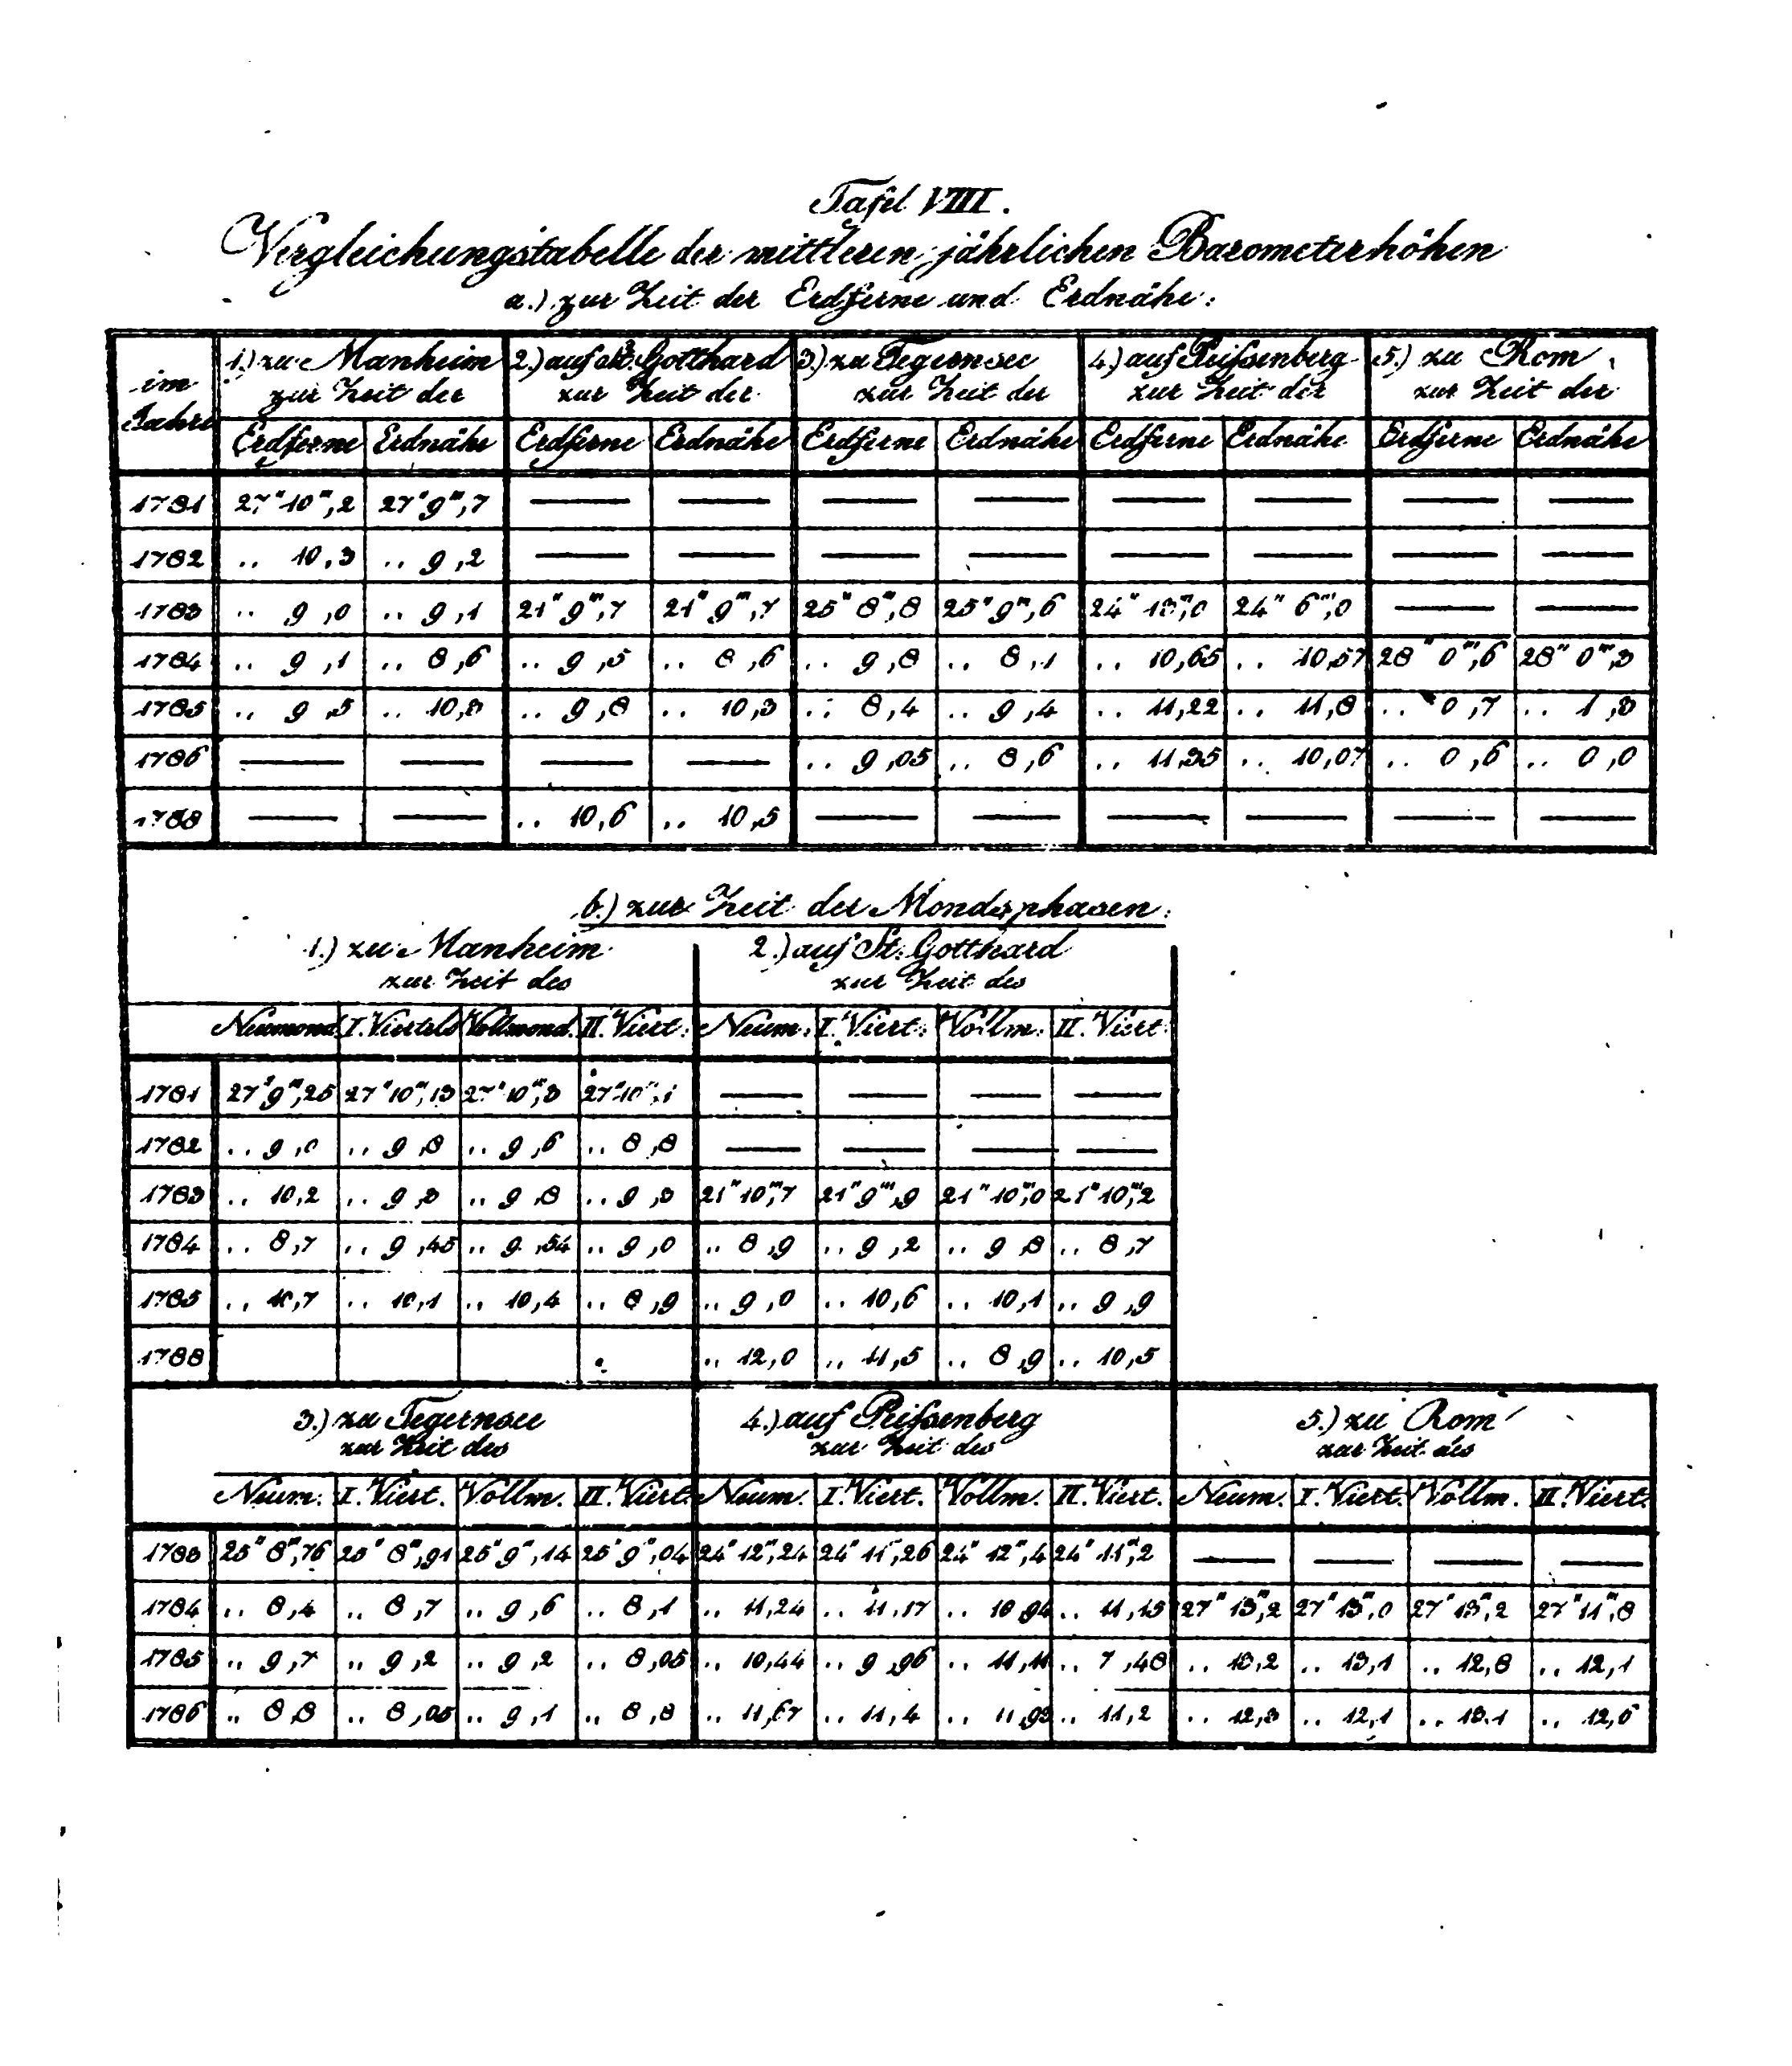 Tafel VIII.
Vergleichungstabelle der mittleren jährlichen Barometerhöhen
a.) zur Zeit der Erdferne und Erdnähe:
im Jahre | 1.) zu Manheim zur Zeit der | 2.) auf d. St. Gotthard zur Zeit der | 3.) zu Tegernsee zur Zeit der | 4.) auf Peißenberg zur Zeit der | 5.) zu Rom zur Zeit der
Erdferne | Erdnähe | Erdferne | Erdnähe | Erdferne | Erdnähe | Erdferne | Erdnähe | Erdferne | Erdnähe
1781 | 27" 10"',2 | 27" 9"',7 | — | — | — | — | — | — | — | —
1782 | .. 10,3 | .. 9,2 | — | — | — | — | — | — | — | —
1783 | .. 9,0 | .. 9,1 | 21" 9"',7 | 21" 9"',7 | 25" 8"',8 | 25" 9"',6 | 24" 13"',0 | 24" 6"',0 | — | —
1784 | .. 9,1 | .. 8,6 | .. 9,5 | .. 8,6 | .. 9,8 | .. 8,1 | .. 10,65 | .. 10,57 | 28" 0"',6 | 28" 0"',3
1785 | .. 9,5 | .. 10,3 | .. 9,8 | .. 10,3 | .. 8,4 | .. 9,4 | .. 11,22 | .. 11,8 | .. 0,7 | .. 1,3
1786 | — | — | — | — | .. 9,05 | .. 8,6 | .. 11,35 | .. 10,07 | .. 0,6 | .. 0,0
1788 | — | — | .. 10,6 | .. 10,5 | — | — | — | — | — | —
b.) zur Zeit der Mondsphasen:
1.) zu Manheim zur Zeit des | 2.) auf St. Gotthard zur Zeit des
Neumond. | I. Viertels | Vollmond. | II. Viert. | Neum. | I. Viert. | Vollm. | II. Viert.
1781 | 27" 9"',25 | 27" 10"',13 | 27" 10"',3 | 27" 10"',1 | — | — | — | —
1782 | .. 9,0 | .. 9,8 | .. 9,6 | .. 8,8 | — | — | — | —
1783 | .. 10,2 | .. 9,3 | .. 9,8 | .. 9,3 | 21" 10"',7 | 21" 9"',9 | 21" 10"',0 | 21" 10"',2
1784 | .. 8,7 | .. 9,45 | .. 9,54 | .. 9,0 | .. 8,9 | .. 9,2 | .. 9,8 | .. 8,7
1785 | .. 10,7 | .. 10,1 | .. 10,4 | .. 8,9 | .. 9,0 | .. 10,6 | .. 10,1 | .. 9,9
1788 | | | | | .. 12,0 | .. 11,5 | .. 8,9 | .. 10,5
3.) zu Tegernsee zur Zeit des | 4.) auf Peißenberg zur Zeit des | 5.) zu Rom zur Zeit des
Neum. | I. Viert. | Vollm. | II. Viert. | Neum. | I. Viert. | Vollm. | II. Viert. | Neum. | I. Viert. | Vollm. | II. Viert.
1783 | 25" 8"',76 | 25" 8"',91 | 25" 9"',14 | 25" 9"',04 | 24" 12"',24 | 24" 11"',26 | 24" 12"',4 | 24" 11"',2 | — | — | — | —
1784 | .. 8,4 | .. 8,7 | .. 9,6 | .. 8,1 | .. 11,24 | .. 11,17 | .. 10,94 | .. 11,15 | 27" 13"',2 | 27" 13"',0 | 27" 13"',2 | 27" 11"',8
1785 | .. 9,7 | .. 9,2 | .. 9,2 | .. 8,05 | .. 10,44 | .. 9,96 | .. 11,11 | .. 7,48 | .. 13,2 | .. 13,1 | .. 12,8 | .. 12,1
1786 | .. 8,8 | .. 8,05 | .. 9,1 | .. 8,8 | .. 11,67 | .. 11,4 | .. 11,93 | .. 11,2 | .. 12,3 | .. 12,1 | .. 13,1 | .. 12,6